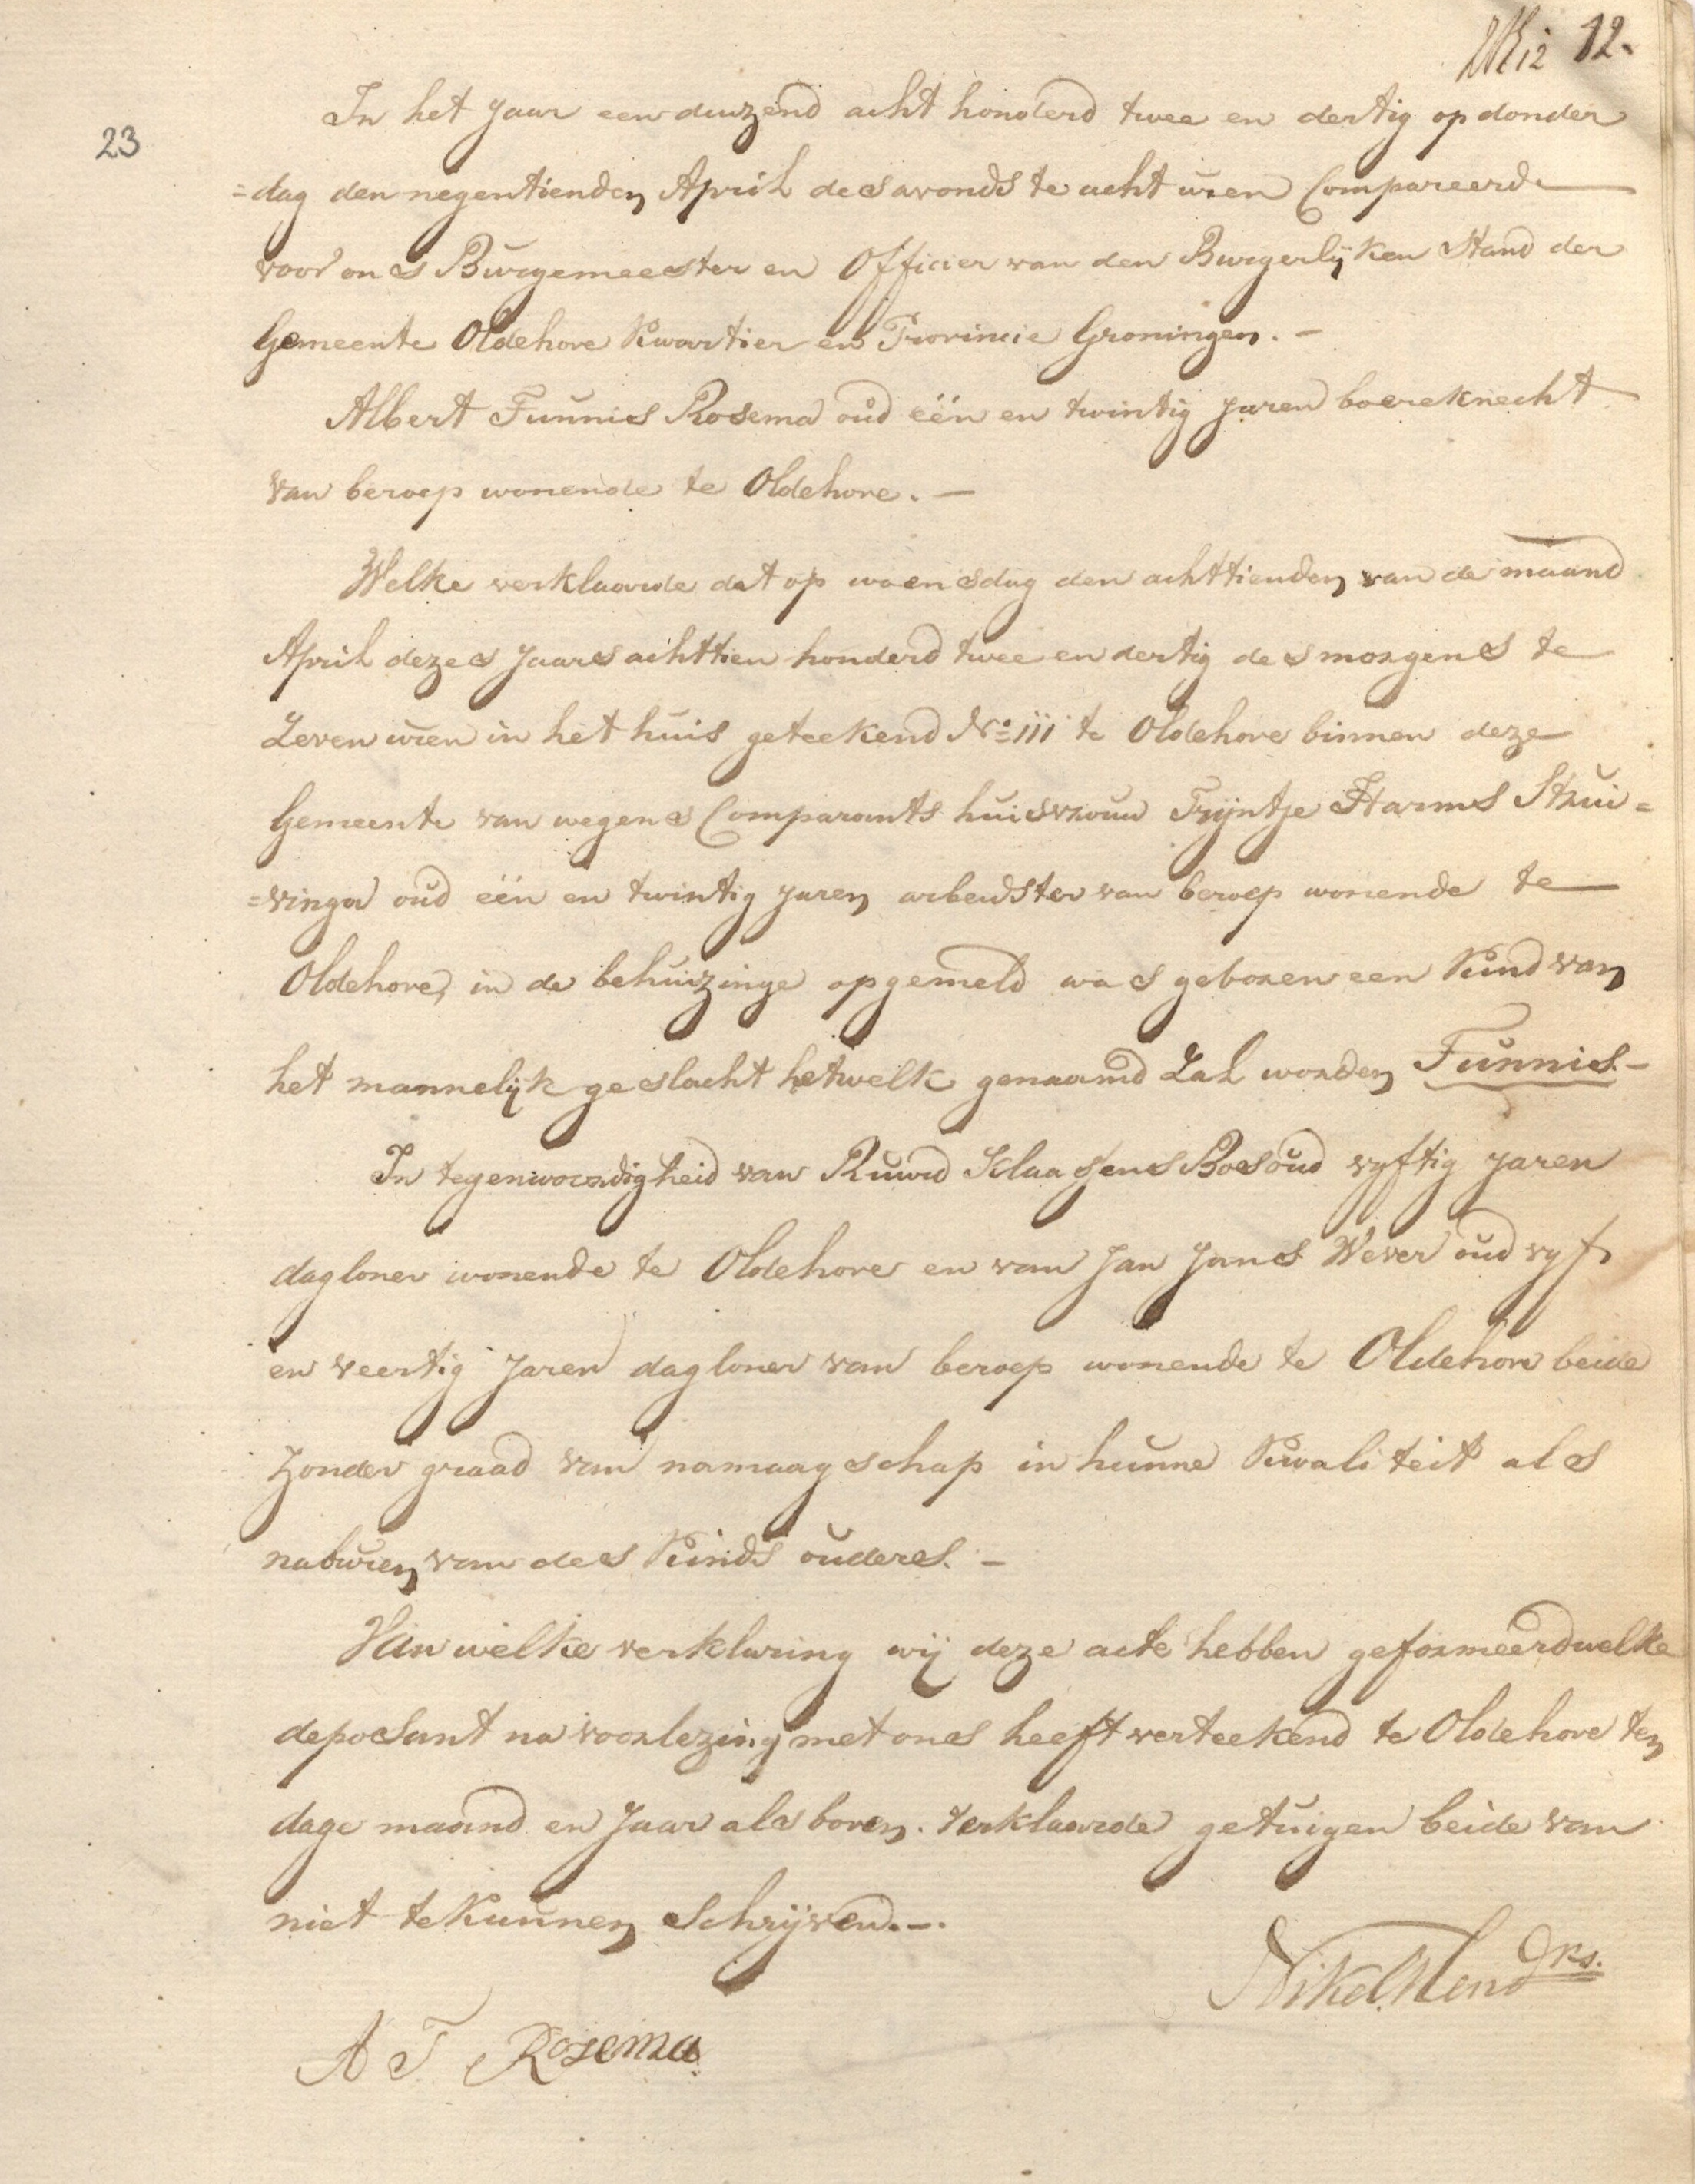 12.
23
In het Jaar een duizend acht honderd twee en dertig op donder
=dag den negentienden April des avonds te acht uren Compareerde
voor ons Burgemeester en Officier van den Burgerlijken Stand der
Gemeente Oldehove Kwartier en Provincie Groningen. -
Albert Tunnis Rosema oud één en twintig Jaren boereknecht
van beroep wonende te Oldehove. -
Welke verklaarde dat op woensdag den achttienden van de maand
April dezes Jaars achttien honderd twee en dertig des morgens te
Zeven uren in het huis geteekend No 111 te Oldehove binnen deze
Gemeente van wegens Comparants huisvrouw Trijntje Harms Strui=
=vinga oud één en twintig Jaren arbeidster van beroep wonende te
Oldehove, in de behuizinge opgemeld was geboren een Kind van
het mannelijk geslacht hetwelk genaamd Zal worden Tunnis. -
In tegenwoordigheid van Ruurd Klaassens Bos oud vyftig Jaren
dagloner wonende te Oldehove en van Jan Jans Wever oud vyf
en veertig Jaren dagloner van beroep wonende te Oldehove beide
zonder graad van namaagschap in hunne Kwaliteit als
naburen van des Kinds ouders. -
Van welke verklaring wij deze acte hebben geformeerd welke
deposant na voorlezing met ons heeft verteekend te Oldehove ten
dage maand en Jaar als boven. verklaarde getuigen beide van
niet te Kunnen Schrijven. -.
A T Rosema